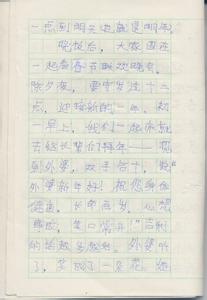 一点到明天也就是明年，
晚饭后，大家围在
一起看春节联欢晚会，
除夕夜，要守岁过十二
点，迎接新的一年，初
一早上，我们一起床就
去给长辈们拜年——
到外婆，双手合十，说"
外婆新年好！祝您身体
健康，长命百岁，心想
事成，笑口常开！"吉利
的话越多越好，外婆听
了，笑成了一朵花，她